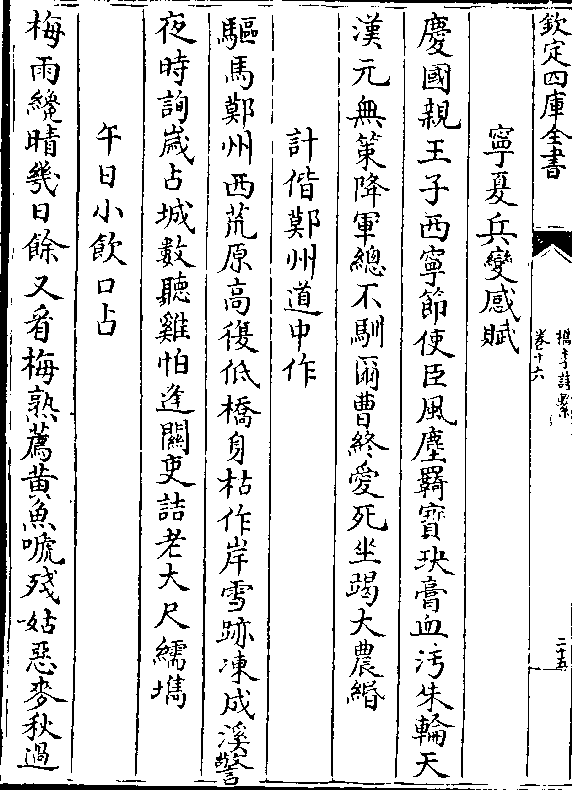 欽定四庫全書
檇李詩繫
卷十六
二十五
寧夏兵變感賦
慶國親王子西寧節使臣風塵羇寶玦膏血汚朱輪天
漢元無策降軍總不馴爾曹終愛死坐竭大農緡
計偕鄭州道中作
驅馬鄭州西荒原高復低橋身枯作岸雪跡凍成溪警
夜時詢嵗占城數聽雞怕逢關吏詰老大尺繻擕
午日小飲口占
梅雨纔晴幾日餘又看梅熟薦黄魚唬殘姑惡麥秋過